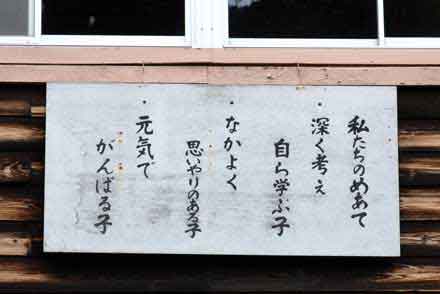 私たちのめあて
・深く考え
自ら学ぶ子
・なかよく
思いやりのある子
・元気で
がんばる子